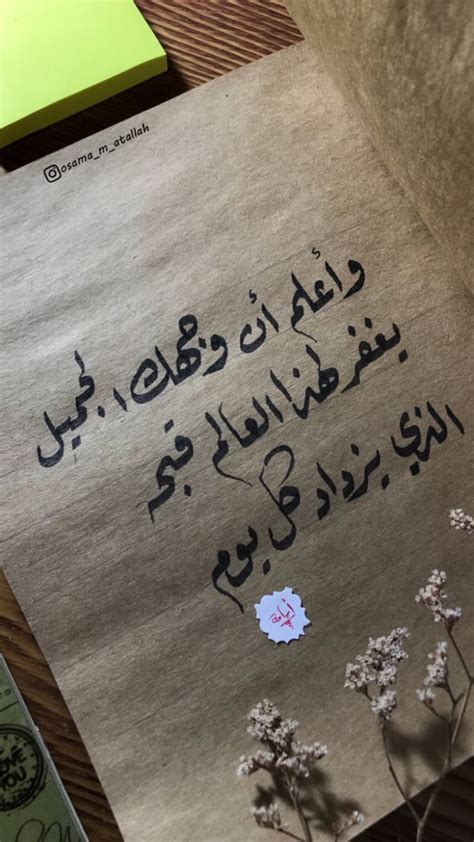 osama_m_atallah
وأعلم أن وجهك الجميل
يغفر لهذا العالم قبحه
الذي يزداد كل يوم
LOVE
YOU